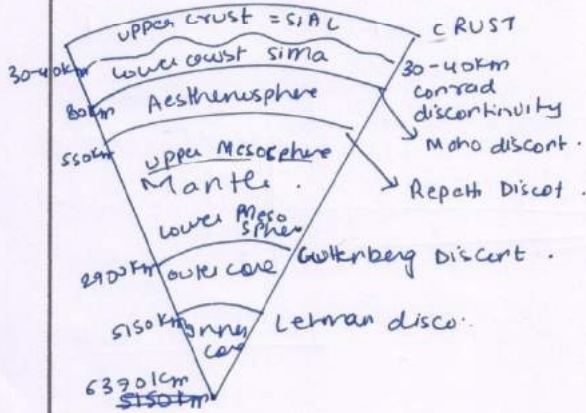 upper crust = SiAL
CRUST
30-40km
lower coust sima
30-40km
conrad
discontinuity
80km
Aesthenusphere
Moho discont.
550km
upper Mesosphere
Repetti Discot.
Mantle.
lower Meso
spher
2900km
outer core
Guttenberg Discont.
5150km
Inner
core
Lehman disco.
6370km
5150km